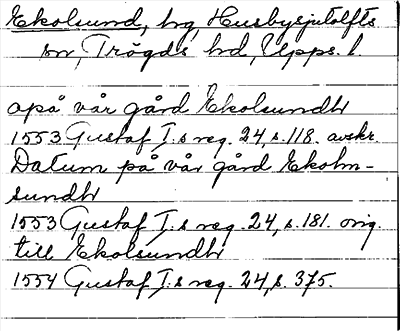 Ekolsund, hg, Husbysjutolfts
sn, Trögds hd, Upps. l
apå vår gård Ekolsundh
1553 Gustaf I:s reg. 24, s. 118. avskr.
Datum på vår gård Ekolm-
sundh
1553 Gustaf I:s reg. 24, s. 181. orig.
till Ekolsundh
1554 Gustaf I:s reg. 24, s. 375.